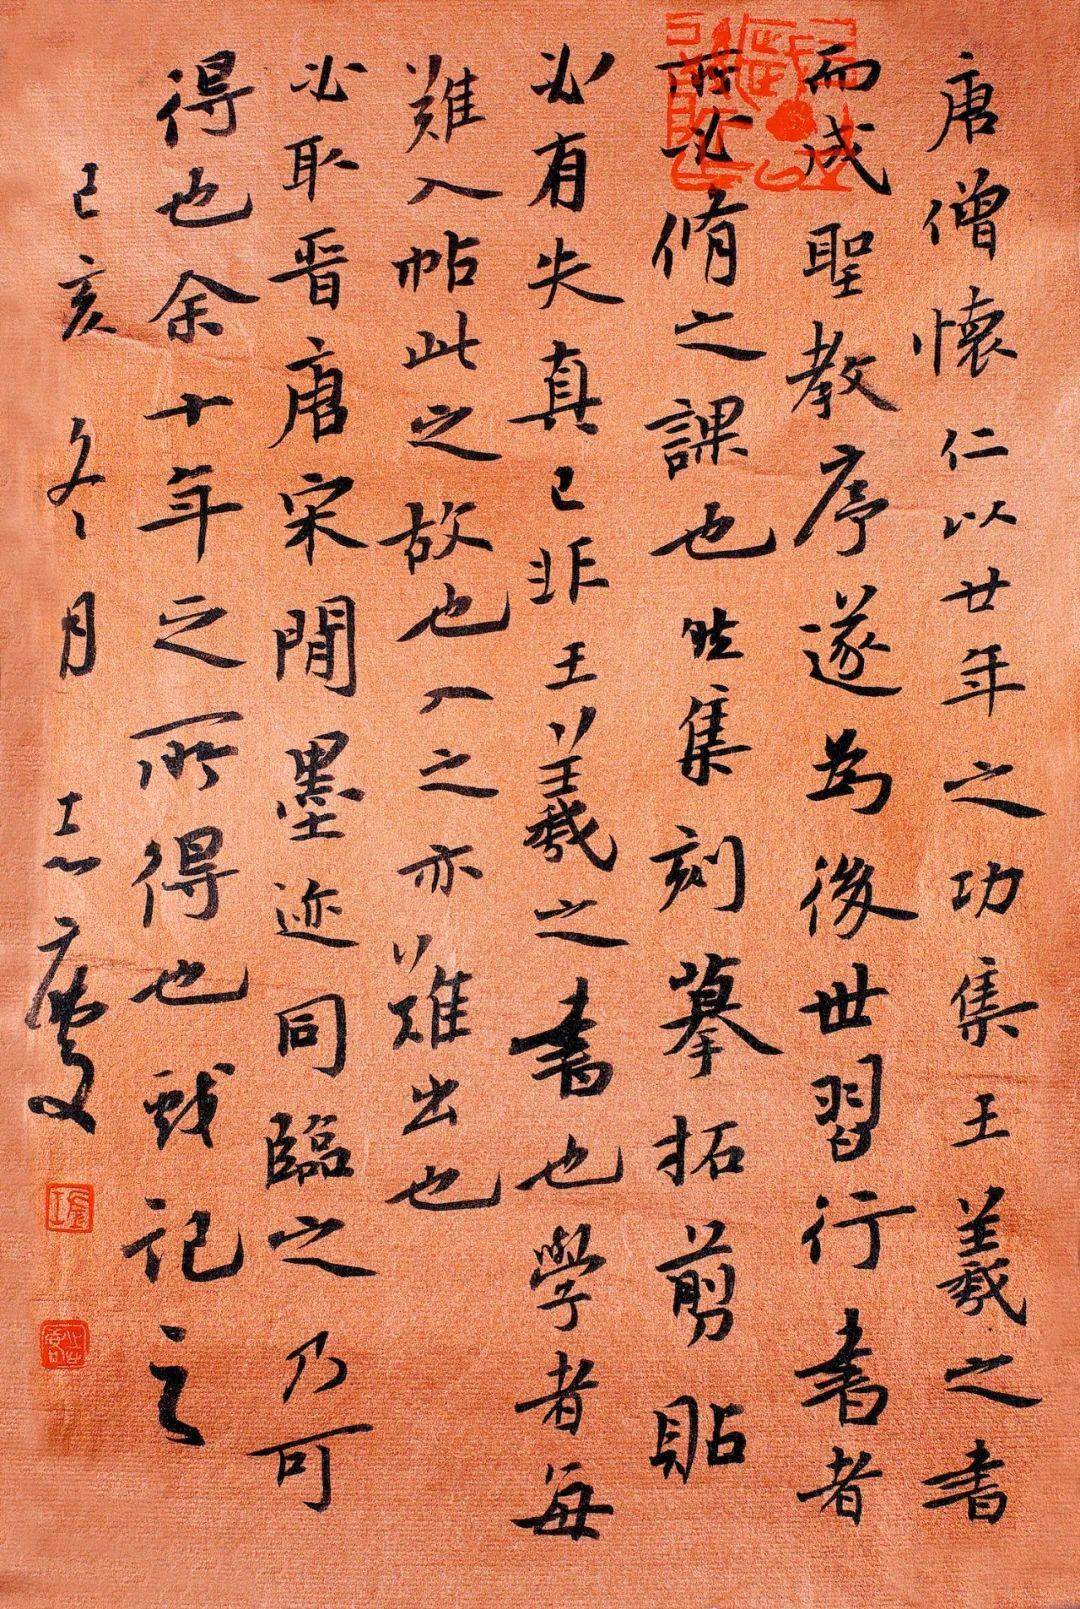 唐僧懷仁以廿年之功集王羲之書
而成聖教序遂為後世習行書者
或必脩之課也然集刻摹拓剪貼
必有失真已非王羲之之書也學者每
難入帖此之故也入之亦難出也
必取晋唐宋間墨迹同臨之乃可
得也余十年之所得也戲記之
己亥冬月志慶